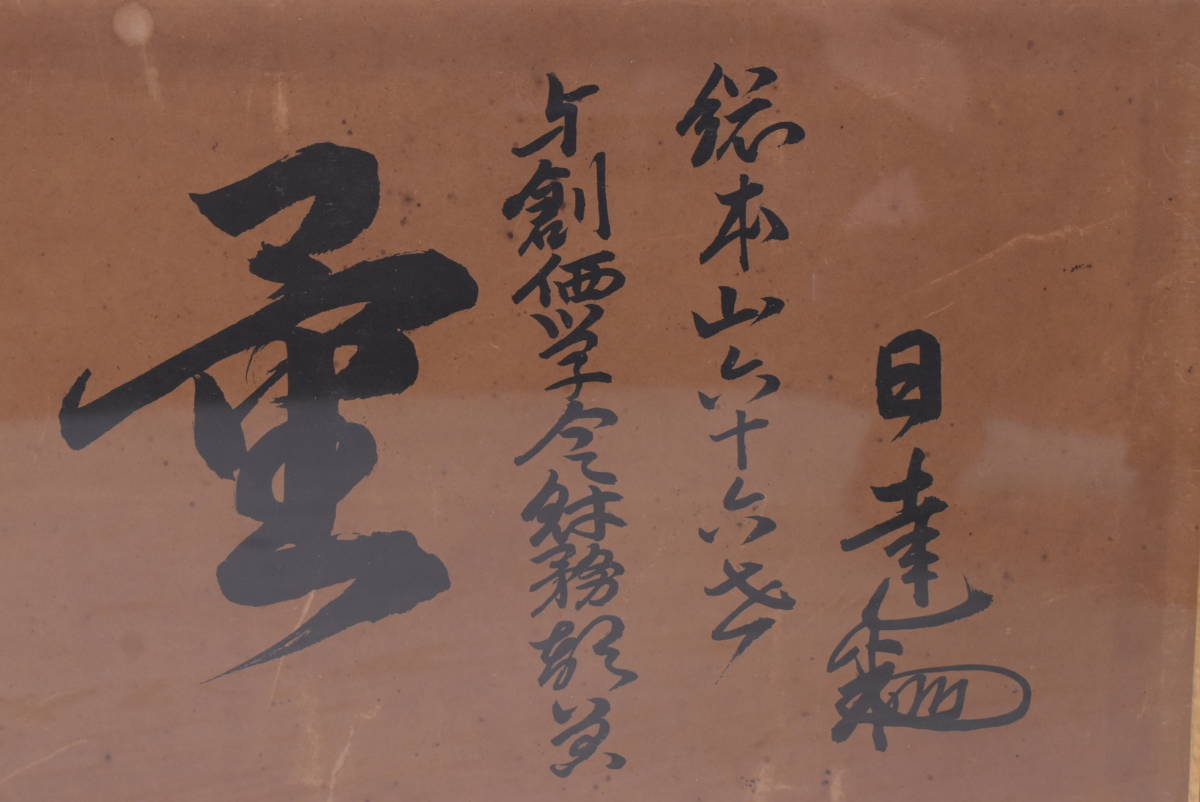 与創価学会財務部員
総本山六十六世
日達